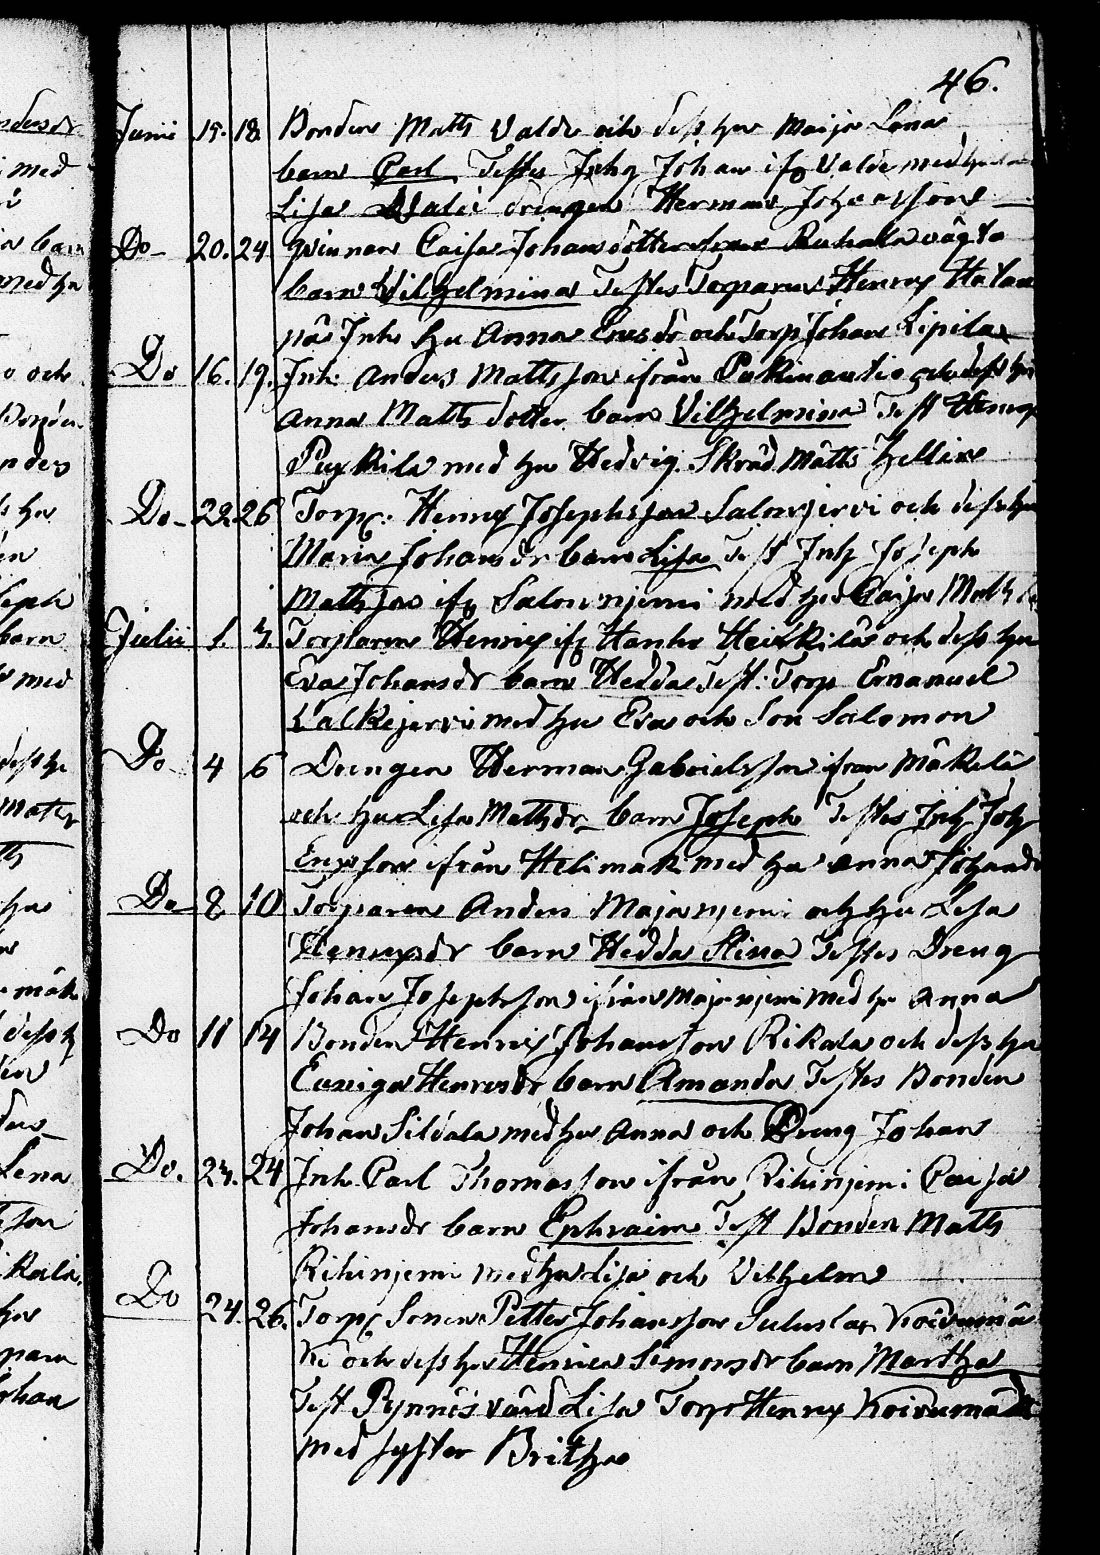 46.
Junii 15. 18 Bonden Matts Valde och dess hu Maija Lena
barn Carl Testes Inhy Johan ifr Valde med hu
Lisa drengen Herman Johansson
Do 20. 24 qvinnan Caisa Johansdotter från
barn Vilhelmina Testes Torparen Henric
Inh hu Anna Ericsdr och Torp Johan Lipila
Do 16. 19. Inh: Anders Mattsson ifrån och dess hu
Anna Mattsdotter barn Vilhelmina Test Henric
med hu Hedvig Skräd Matts Hellin
Do 22. 26 Torp: Henric Josephsson Salonjervi och dess hu
Maria Johansdr barn Lisa Test Inh Joseph
Mattsson ifr Salonnjemi med hu Caisa Matts
Julii 1. 3. Torparen Henric ifr Hanho Heikkilä och dess hu
Eva Johansdr barn Hedda Test: Torp Emanuel
Valkejervi med hu Eva och Son Salomon
Do 4 6 Drengen Herman Gabrielsson ifrån Mäkelä
och hu Lisa Mattsdr barn Joseph Testes Inh Joh
Ericsson ifrån Helimäk med hu Anna Johansd
Do 8 10 Torparen Anders Majanjemi och hu Lisa
Henricsdr barn Hedda Stina Testes Dreng
Johan Josephsson ifrån Majanjemi med hu Anna
Do 11 14 Bonden Henric Johansson Rikala och dess hu
Henricsdr barn Amanda Testes Bonden
Johan Sildala med hu Anna och Dreng Johan
Do. 23. 24 Inh Carl Thomasson ifrån Rihinjemi Caisa
Johansdr barn Ephraim Test Bonden Matts
Rihinjemi med hu Lisa och Vilhelm
Do 24. 26. Torp Sonen Petter Johansson Koivumä
ki och dess hu Henrica Simonsdr barn Martha
Test Pynnös värd Lisa Torp Henric Koivumä
med syster Britha